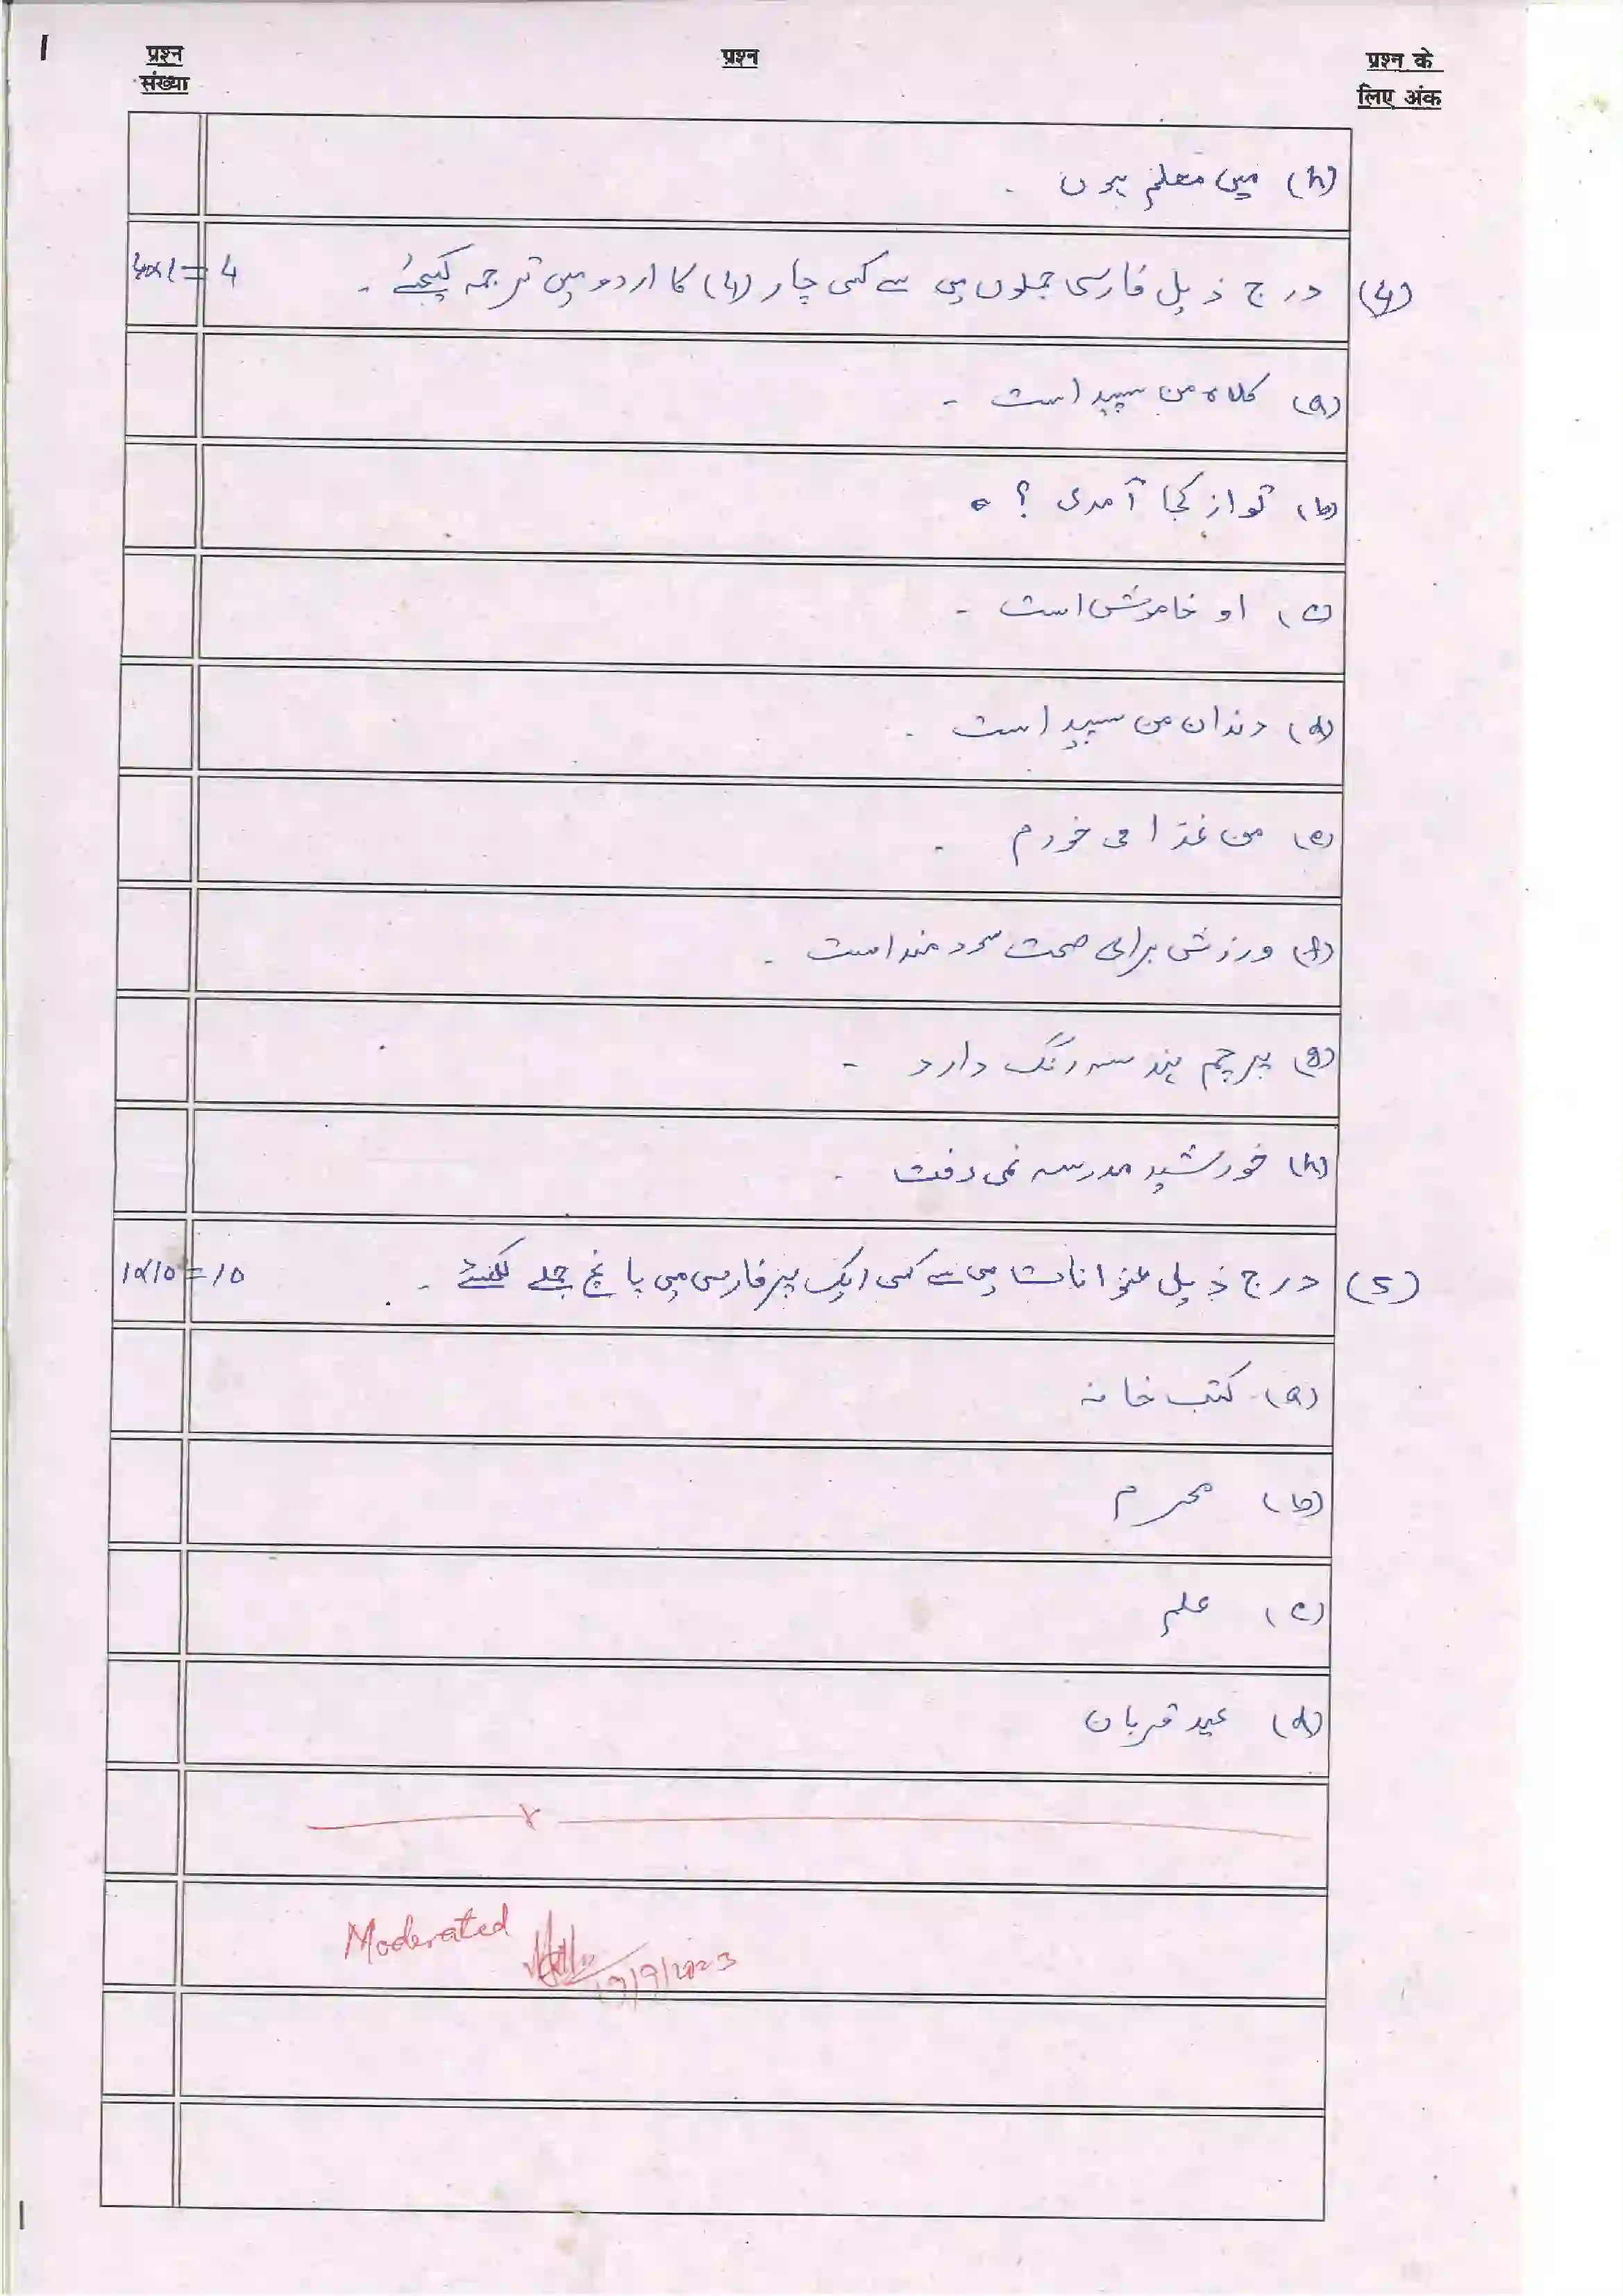 1
प्रश्न संख्या
प्रश्न
प्रश्न के लिए अंक
(h) میں معلم ہوں ۔
(4) درج ذیل فارسی جملوں میں سے کسی چار (4) کا اردو میں ترجمہ کیجئے ۔ 4x1=4
(a) کلاہ من سپید است ۔
(b) تو از کجا آمدی ؟
(c) او خاموش است ۔
(d) دندان من سپید است ۔
(e) من غذا می خورم ۔
(f) ورزش برای صحت سود مند است ۔
(g) پرچم ہند سہ رنگ دارد ۔
(h) خورشید مدرسہ نمی رفت ۔
(5) درج ذیل عنوانات میں سے کسی ایک پر فارسی میں پانچ جملے لکھئے ۔ 1x10=10
(a) کتب خانہ
(b) محرم
(c) علم
(d) عید قربان
Moderated
/9/2023